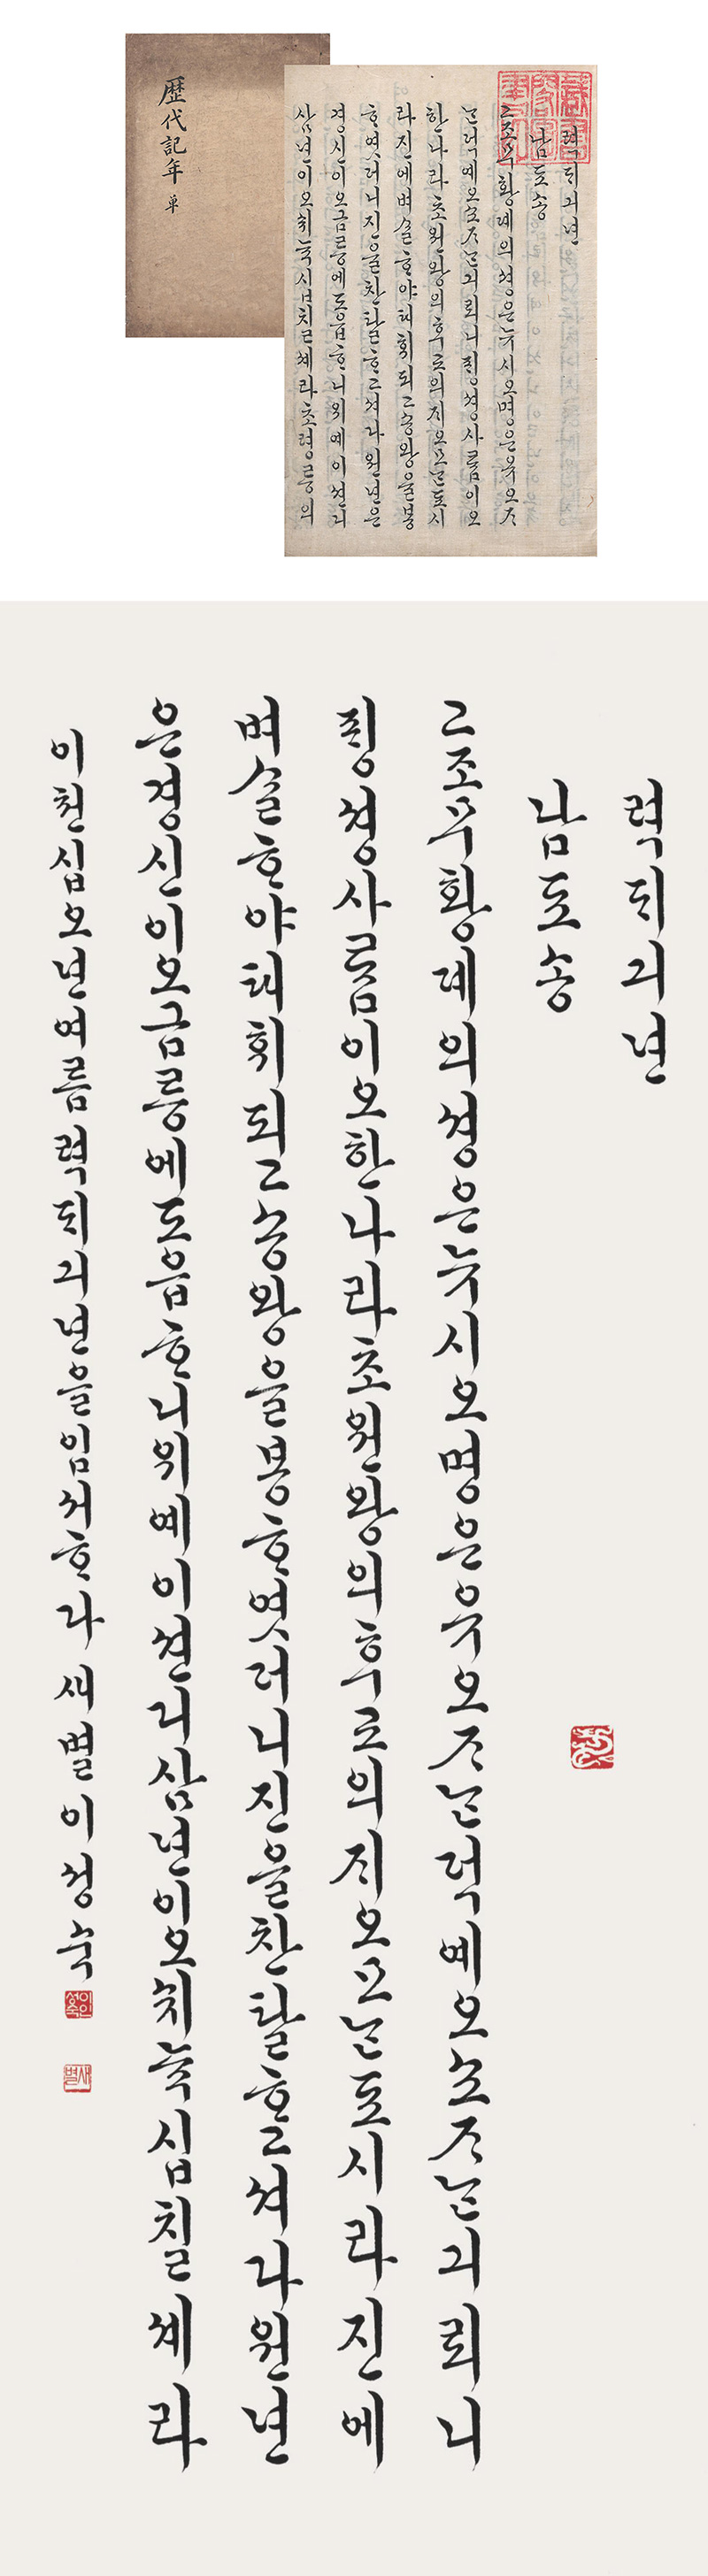 歷代記年 單
력ᄃᆡ긔년
남토송
고조무황뎨의셩은뉴시오명은유오ᄌᆞ
ᄂᆞᆫ덕예오ᄯᅩᄌᆞᄂᆞᆫ긔뢰니ᄑᆡᆼ셩사ᄅᆞᆷ이오
한나라초원왕의후로의지오모ᄂᆞᆫ됴시
라진에벼슬ᄒᆞ야태휘되고송왕을봉
ᄒᆞ엿더니진을찬탈ᄒᆞ고셔다원년은
경신이오금릉에도읍ᄒᆞ니위예이션디
삼년이오치뉵십칠셰라초령릉의
력ᄃᆡ긔년
남토송
고조무황뎨의셩은뉴시오명은유오ᄌᆞᄂᆞᆫ덕예오ᄯᅩᄌᆞᄂᆞᆫ긔뢰니
ᄑᆡᆼ셩사ᄅᆞᆷ이오한나라초원왕의후로의지오모ᄂᆞᆫ됴시라진에
벼슬ᄒᆞ야태휘되고송왕을봉ᄒᆞ엿더니진을찬탈ᄒᆞ고셔다원년
은경신이오금릉에도읍ᄒᆞ니위예이션디삼년이오치뉵십칠셰라
이천십오년여름력ᄃᆡ긔년을임서ᄒᆞ다 새별이성숙
새별